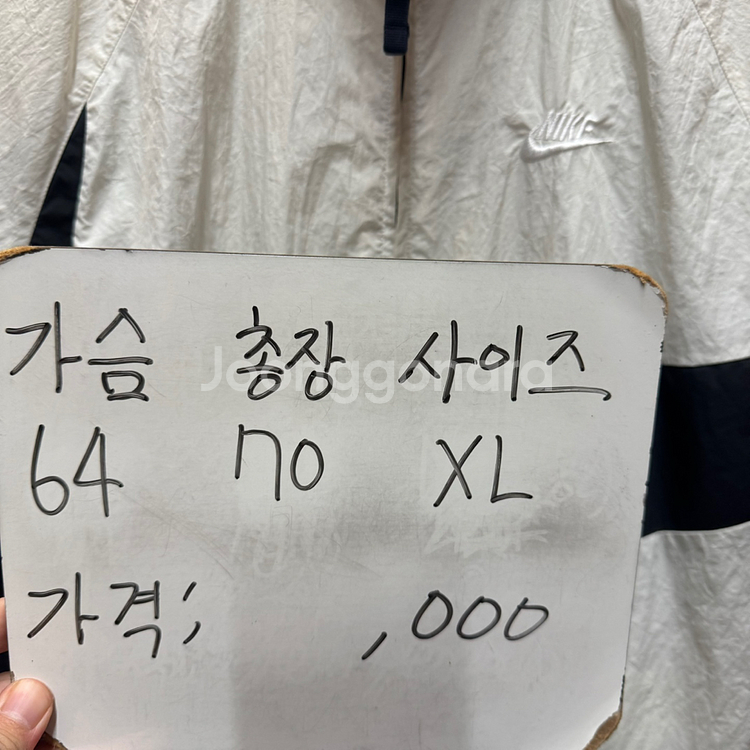 NIKE
가슴 총장 사이즈
Joonggonara
64 70 XL
가격; ,000